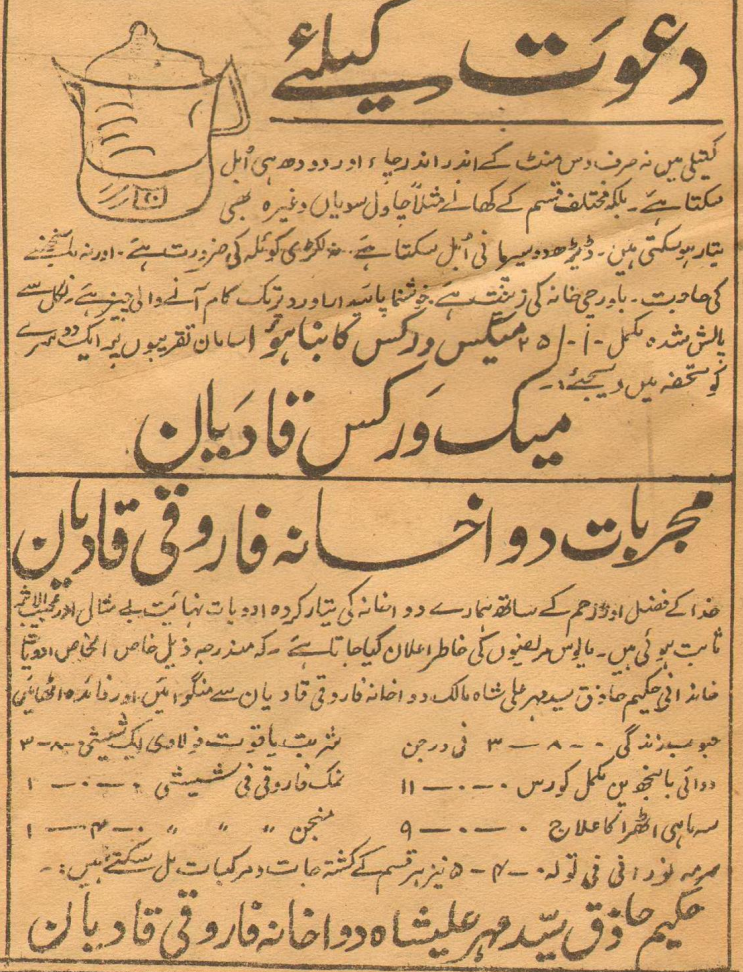 دعوت کیلئے
کیتلی میں نہ صرف دس منٹ کے اندر اندر چاء اور دودھ ہی اُبل
سکتا ہے۔ بلکہ مختلف قسم کے کھانے مثلاً چاول سویاں وغیرہ بھی
تیار ہو سکتی ہیں۔ ڈیڑھ دو سیر پانی اُبل سکتا ہے۔ نہ لکڑی کوئلہ کی ضرورت ہے۔ اور نہ
کی حاجت۔ باورچی خانہ کی زینت ہے۔ خوشنما پائیدار اور دیر تک کام آنے والی چیز ہے۔ نکل سے
پالش شدہ مکمل -/-/۲۵ میکس ورکس کا بنا ہوا سامان تقریبوں پر ایک دوسرے
کو تحفہ میں دیجئے:۔
میک ورکس قادیان
مجربات دواخانہ فاروقی قادیان
خدا کے فضل اور رحم کے ساتھ ہمارے دواخانہ کی تیار کردہ ادویات نہائیت بے مثالی اور عجیب الاثر
ثابت ہوئی ہیں۔ مایوس مریضوں کی خاطر اعلان کیا جاتا ہے۔ کہ مندرجہ ذیل خاص الخاص ادویات
خاندانی حکیم حاذق سید مہر علی شاہ مالک دواخانہ فاروقی قادیان سے منگوائیں اور فائدہ اٹھائیں
حبوب زندگی ۰-۸-۳ فی درجن شربت یاقوت فولادی ایک شیشی ۰-۸-۳
دوائی بانجھ پن مکمل کورس ۰-۰-۱۱ نمک فاروقی فی شیشی ۰-۰-۱
سہ ماہی اٹھرا کا علاج ۰-۰-۹ منجن " " " ۰-۴-۱
سرمہ نورانی فی تولہ ۰-۴-۵ نیز ہر قسم کے کشتہ جات و مرکبات مل سکتے ہیں:۔
حکیم حاذق سیّد مہر علیشاہ دواخانہ فاروقی قادیان